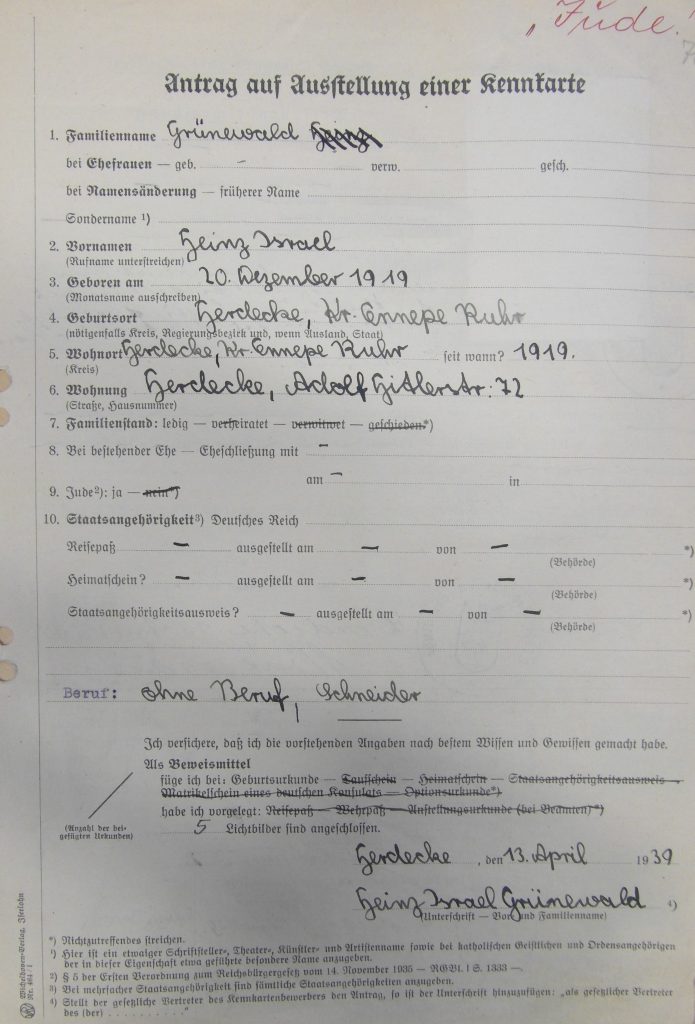 „Jude!
Antrag auf Ausstellung einer Kennkarte
1. Familienname Grünewald Heinz
bei Ehefrauen — geb. – verw. gesch.
bei Namensänderung — früherer Name
Sondername ¹)
2. Vornamen Heinz Israel
(Rufname unterstreichen)
3. Geboren am 20. Dezember 1919
(Monatsname ausschreiben)
4. Geburtsort Herdecke, Kr. Ennepe Ruhr
(nötigenfalls Kreis, Regierungsbezirk und, wenn Ausland, Staat)
5. Wohnort Herdecke, Kr. Ennepe Ruhr seit wann? 1919.
(Kreis)
6. Wohnung Herdecke, Adolf Hitlerstr: 72
(Straße, Hausnummer)
7. Familienstand: ledig — verheiratet — verwitwet — geschieden*)
8. Bei bestehender Ehe — Eheschließung mit –
am – in
9. Jude²): ja — nein*)
10. Staatsangehörigkeit³) Deutsches Reich
Reisepaß — ausgestellt am — von — *)
(Behörde)
Heimatschein? — ausgestellt am — von — *)
(Behörde)
Staatsangehörigkeitsausweis? — ausgestellt am — von — *)
(Behörde)
Beruf: ohne Beruf, Schneider
Ich versichere, daß ich die vorstehenden Angaben nach bestem Wissen und Gewissen gemacht habe.
Als Beweismittel
füge ich bei: Geburtsurkunde — Taufschein — Heimatschein — Staatsangehörigkeitsausweis —
Matrikelschein eines deutschen Konsulats — Optionsurkunde*)
habe ich vorgelegt: Reisepaß — Wehrpaß — Anstellungsurkunde (bei Beamten)*)
(Anzahl der bei-
gefügten Urkunden)
5 Lichtbilder sind angeschlossen.
Herdecke, den 13. April 1939
Heinz Israel Grünewald ⁴)
(Unterschrift — Vor- und Familienname)
*) Nichtzutreffendes streichen.
¹) Hier ist ein etwaiger Schriftsteller-, Theater-, Künstler- und Artistenname sowie bei katholischen Geistlichen und Ordensangehörigen
der in dieser Eigenschaft etwa geführte besondere Name anzugeben.
²) § 5 der Ersten Verordnung zum Reichsbürgergesetz vom 14. November 1935 — RGBl. I S. 1333 —.
³) Bei mehrfacher Staatsangehörigkeit sind sämtliche Staatsangehörigkeiten anzugeben.
⁴) Stellt der gesetzliche Vertreter des Kennkartenbewerbers den Antrag, so ist der Unterschrift hinzuzufügen: „als gesetzlicher Vertreter
des (der) . . . . . . . . . ."
Wichelhoven-Verlag, Iserlohn